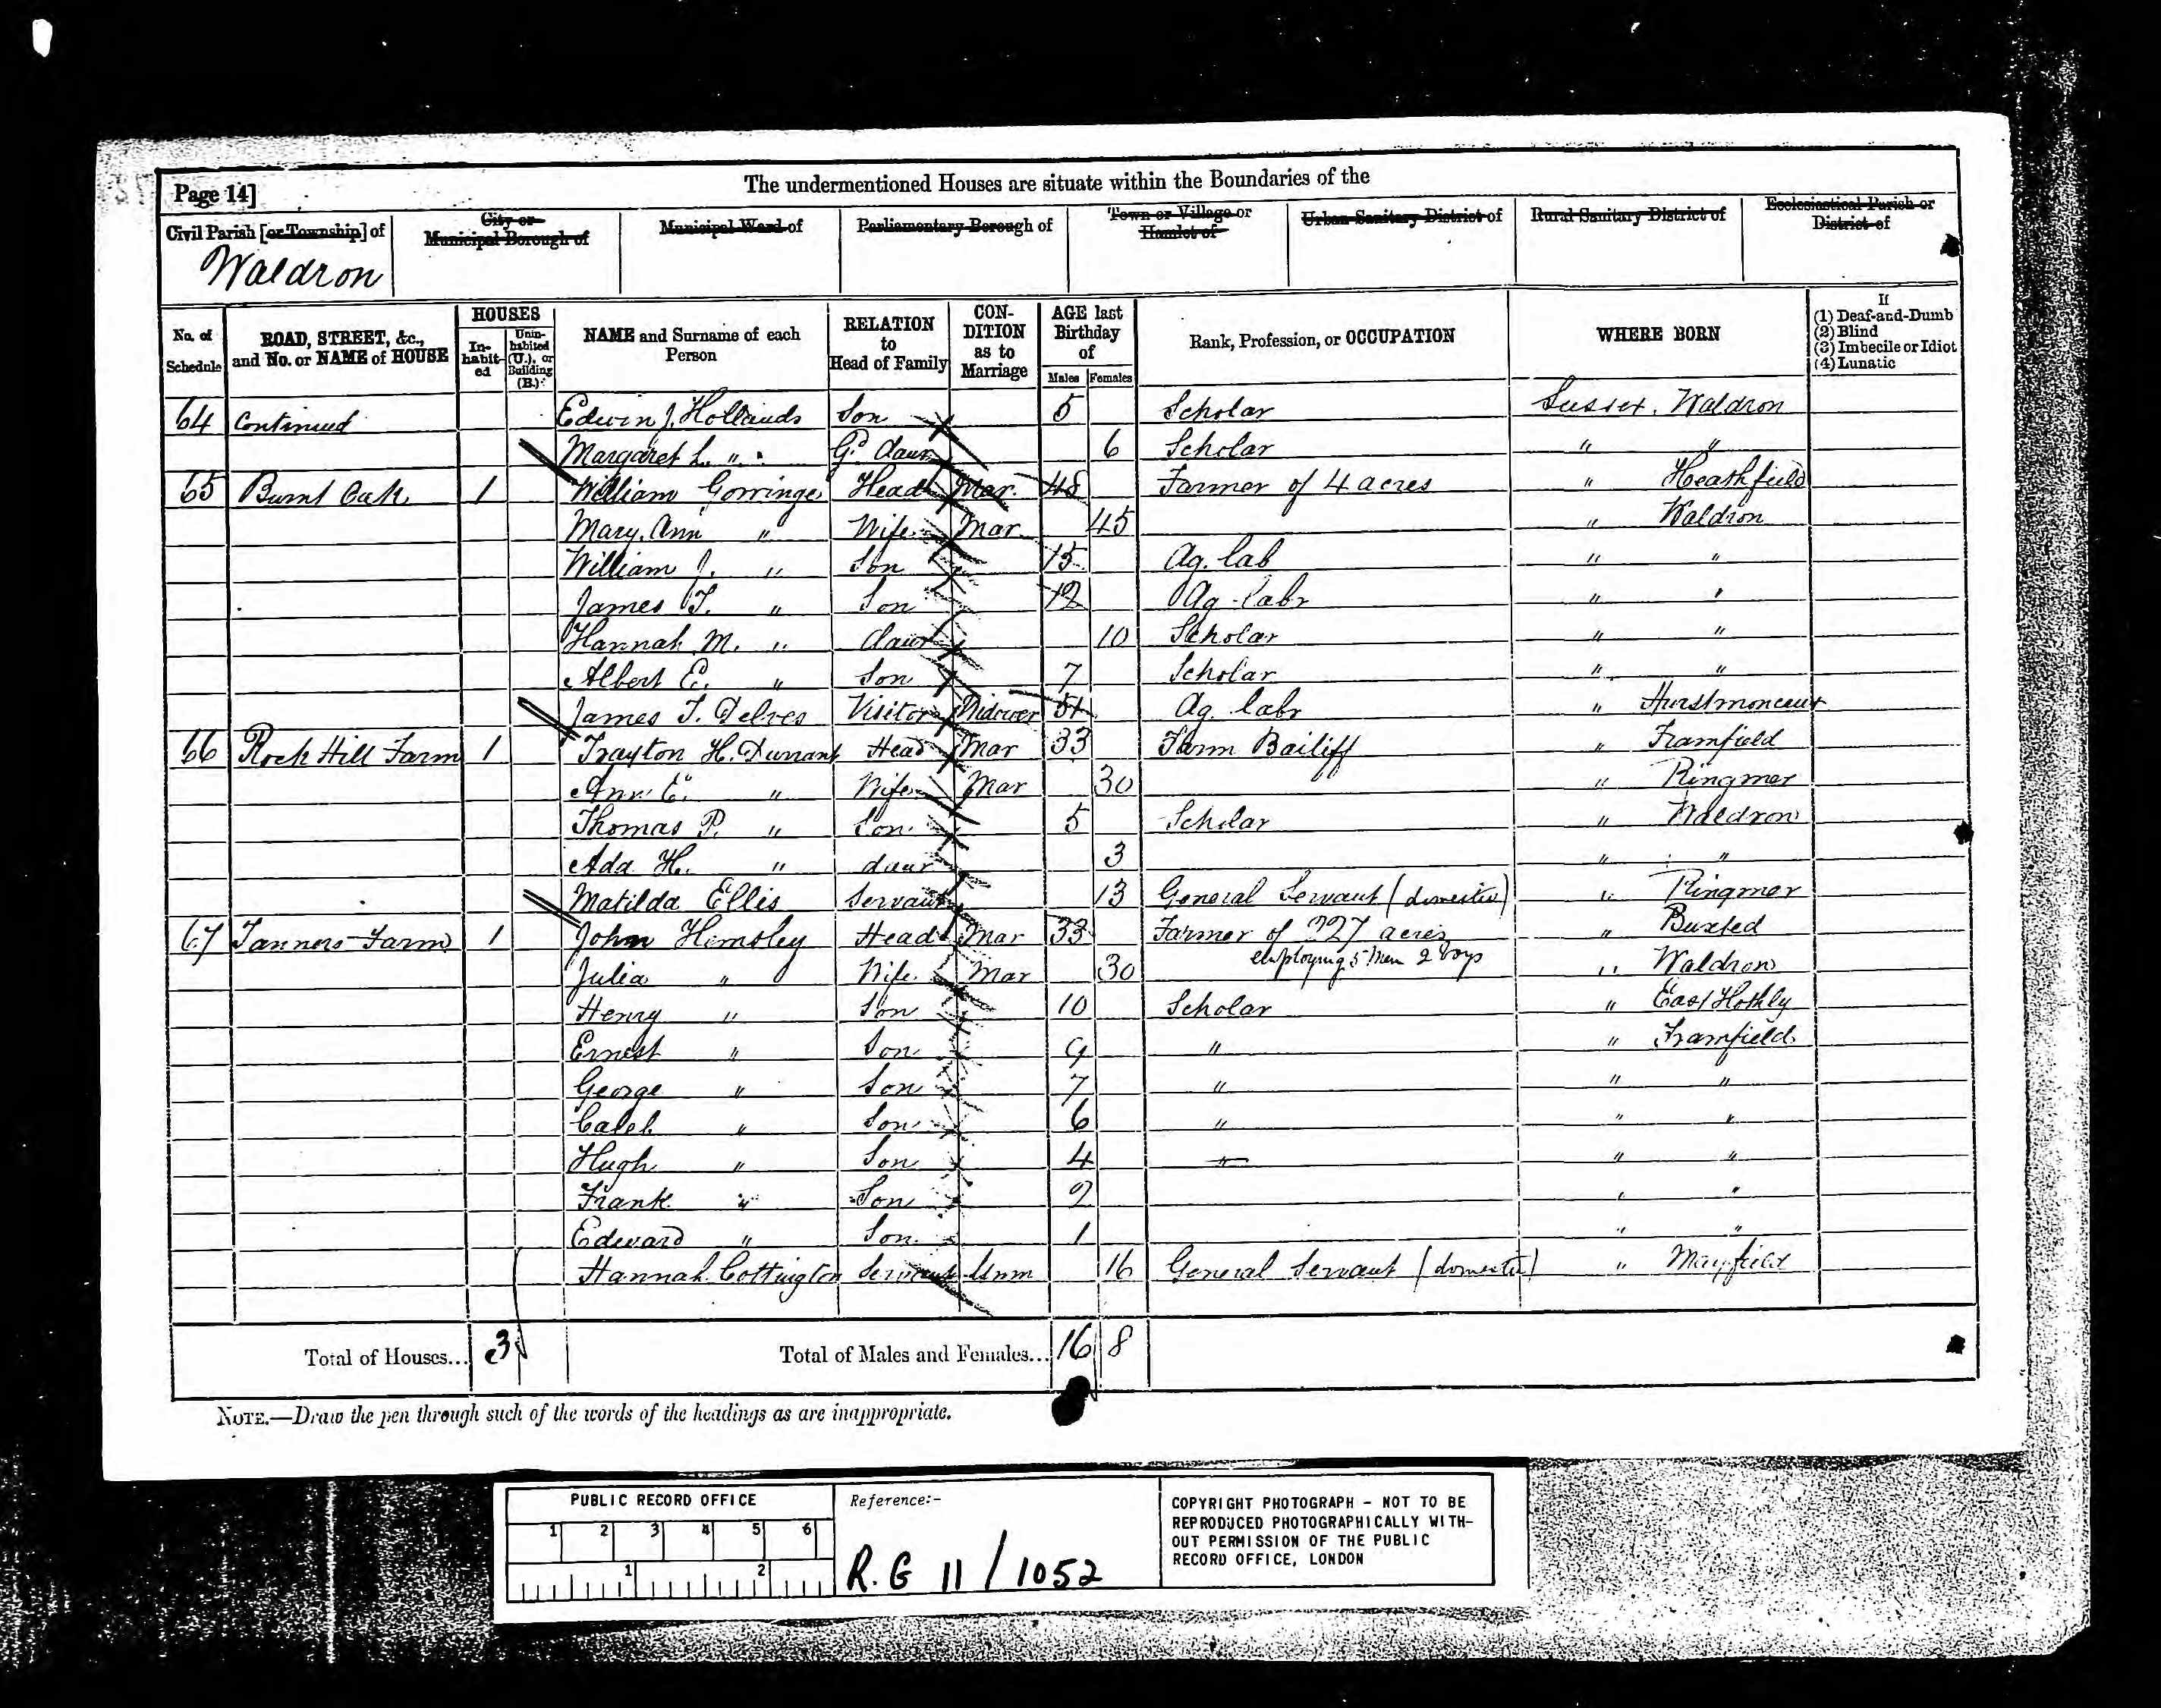 Page 14]
The undermentioned Houses are situate within the Boundaries of the
Civil Parish [or Township] of
City or Municipal Borough of
Municipal Ward of
Parliamentary Borough of
Town or Village or Hamlet of
Urban Sanitary District of
Rural Sanitary District of
Ecclesiastical Parish or District of
Waldron
No. of Schedule
ROAD, STREET, &c., and No. or NAME of HOUSE
HOUSES
In-habit-ed
Unin-habited (U.), or Building (B.)
NAME and Surname of each Person
RELATION to Head of Family
CON-DITION as to Marriage
AGE last Birthday of
Males
Females
Rank, Profession, or OCCUPATION
WHERE BORN
If
(1) Deaf-and-Dumb
(2) Blind
(3) Imbecile or Idiot
(4) Lunatic
64 Continued Edwin J. Hollands Son 5 Scholar Sussex. Waldron
Margaret L. " G. daur 6 Scholar " "
65 Burnt Oak 1 William Gorringe Head Mar. 48 Farmer of 4 acres " Heathfield
Mary Ann " Wife Mar 45 " Waldron
William J. " Son 15 Ag. lab " "
James T. " Son 12 Ag. labr " "
Hannah M. " daur 10 Scholar " "
Albert E. " Son 7 Scholar " "
James T. Delves Visitor Widower 51 Ag. labr " Hurstmonceux
66 Rock Hill Farm 1 Trayton H. Durrant Head Mar 33 Farm Bailiff " Framfield
Ann E. " Wife Mar 30 " Ringmer
Thomas P. " Son 5 Scholar " Waldron
Ada H. " daur 3 " "
Matilda Ellis Servant 13 General Servant (domestic) " Ringmer
67 Tanners Farm 1 John Hemsley Head Mar 33 Farmer of 227 acres " Buxted
employing 5 Men 2 boys
Julia " Wife Mar 30 " Waldron
Henry " Son 10 Scholar " East Hothly
Ernest " Son 9 " " Framfield
George " Son 7 " " "
Caleb " Son 6 " " "
Hugh " Son 4 " " "
Frank " Son 2 " "
Edward " Son 1 " "
Hannah Cottington Servant Unm 16 General Servant (domestic) " Mayfield
Total of Houses... 3
Total of Males and Females... 16 8
NOTE.—Draw the pen through such of the words of the headings as are inappropriate.
PUBLIC RECORD OFFICE
1 2 3 4 5 6
1 2
Reference:-
R.G 11 / 1052
COPYRIGHT PHOTOGRAPH - NOT TO BE
REPRODUCED PHOTOGRAPHICALLY WITH-
OUT PERMISSION OF THE PUBLIC
RECORD OFFICE, LONDON